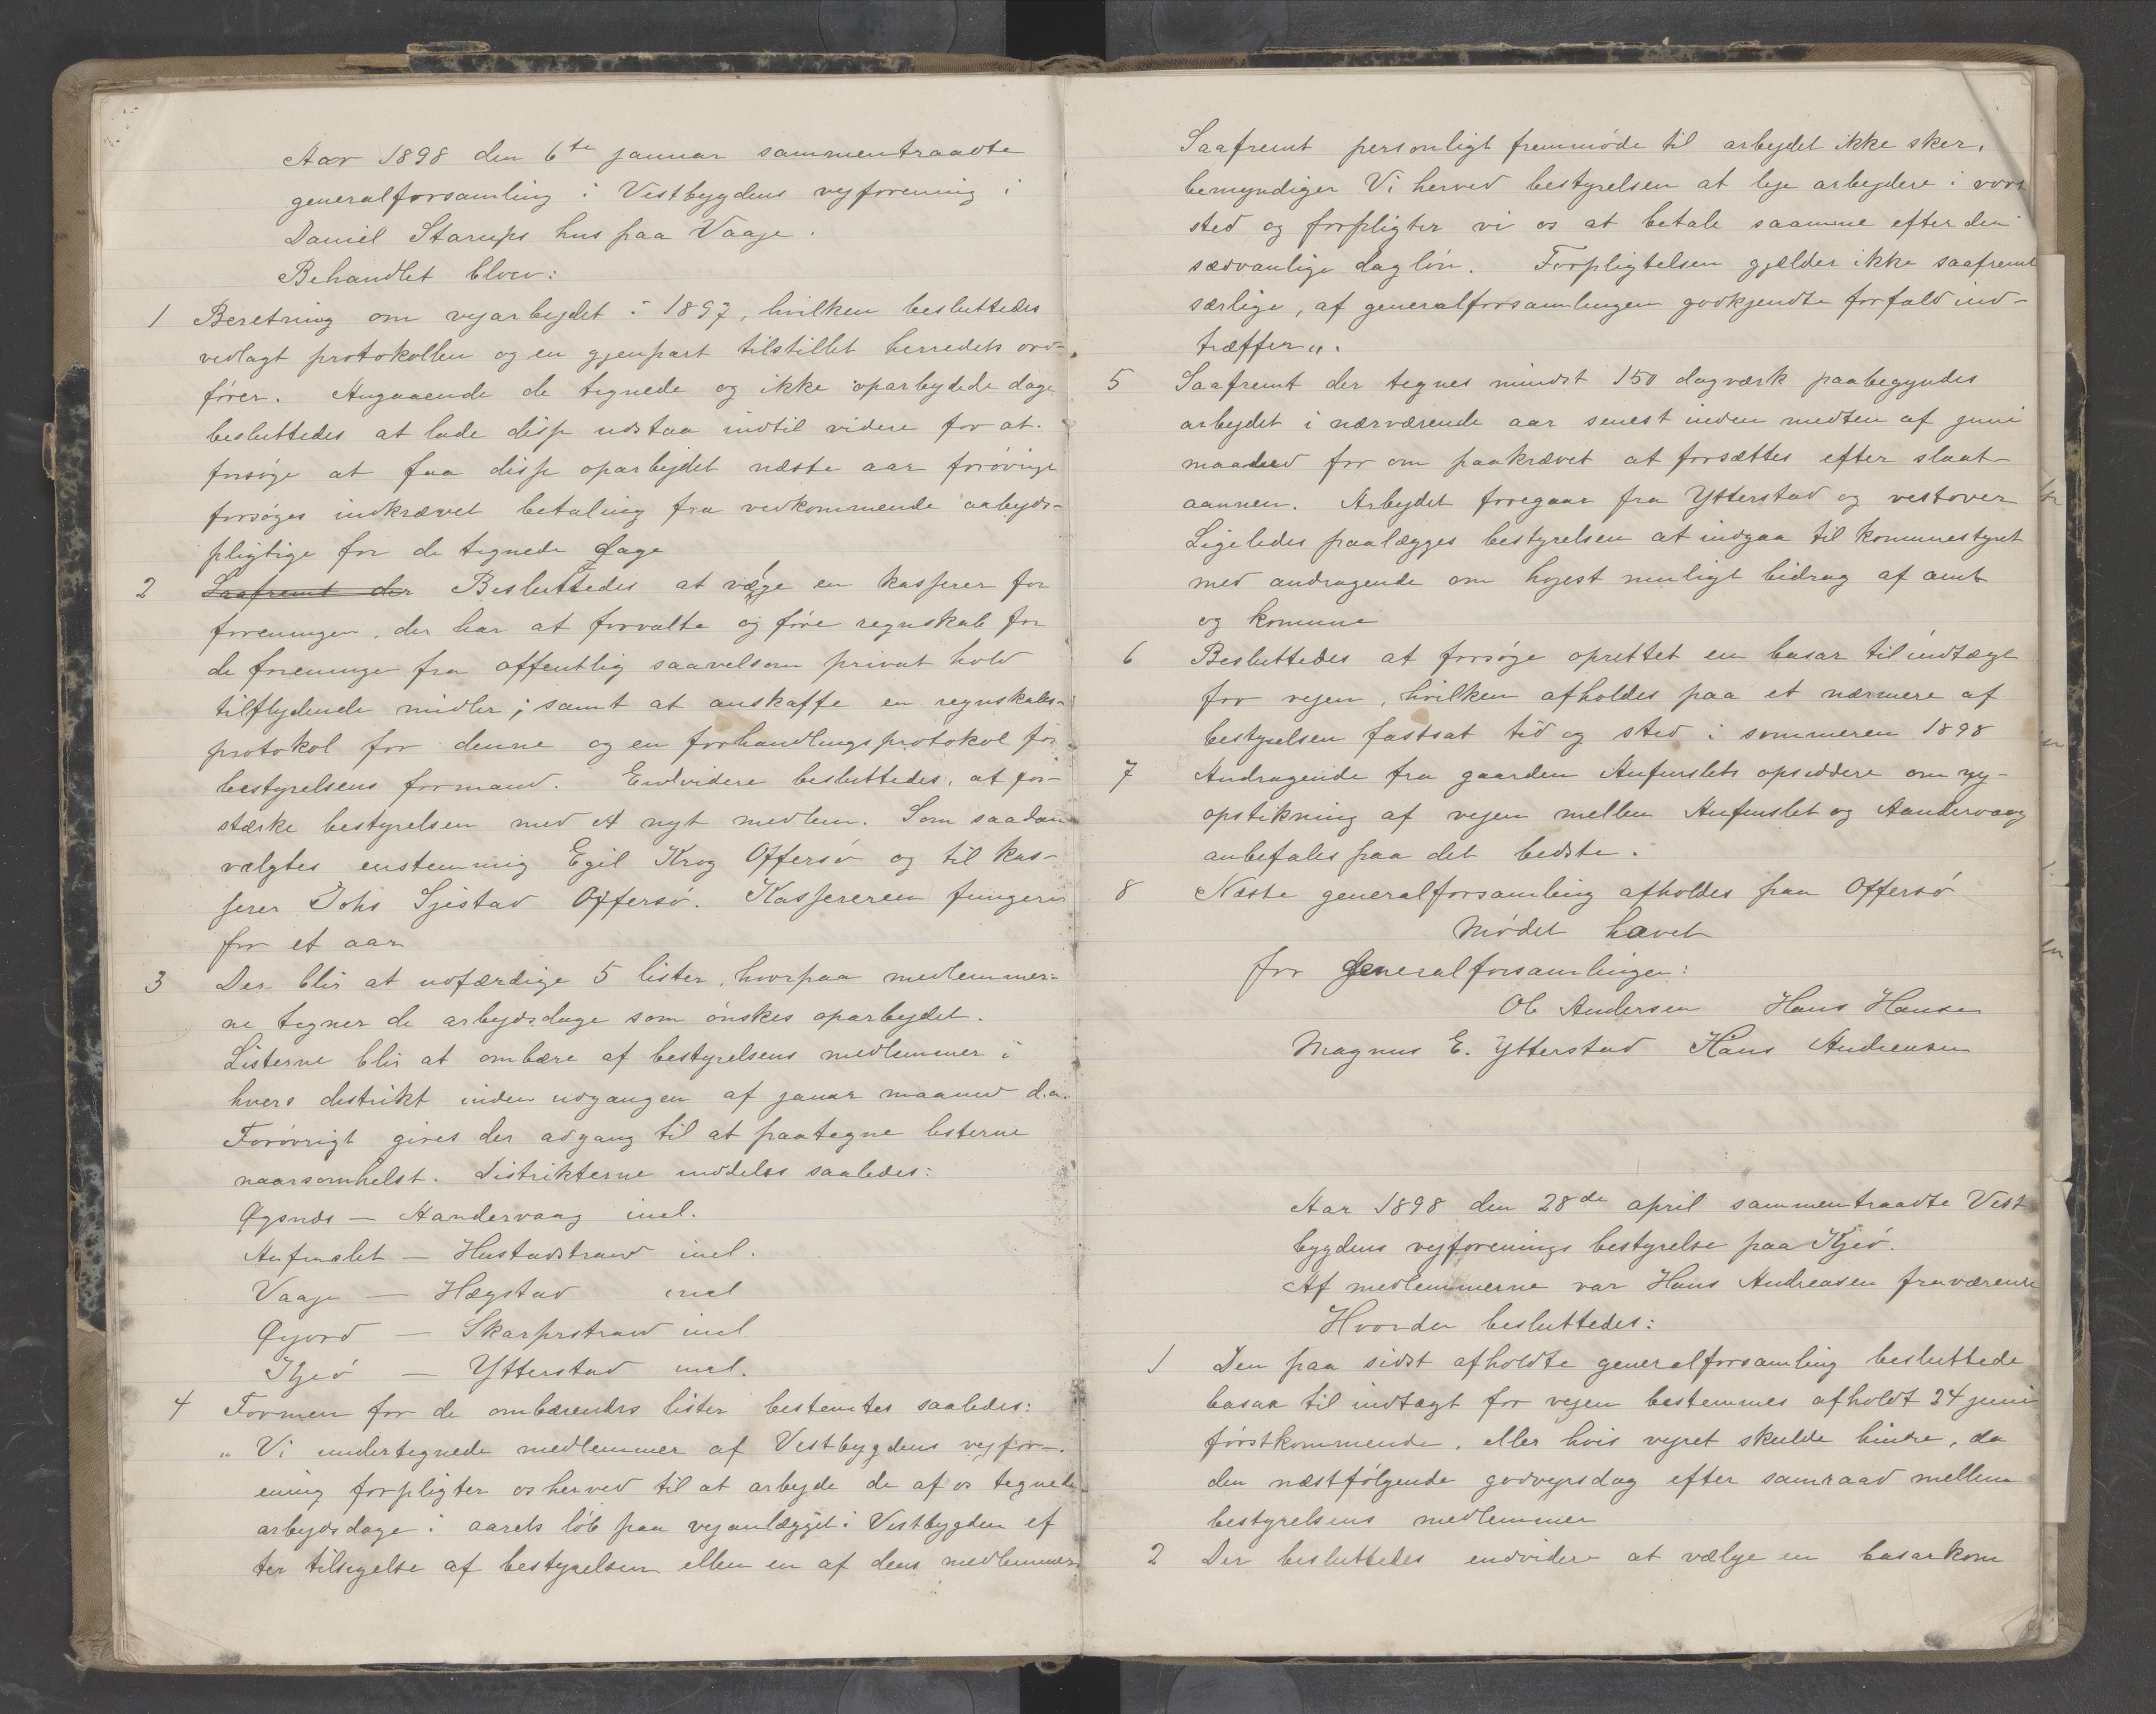 Aar 1898 den 6te januar sammentraadte
generalforsamling i Vestbygdens vejforening i
Daniel Starups hus paa Vaage.
Behandlet blev:
1 Beretning om vejarbejdet i 1897, hvilken besluttedes
vedlagt protokollen og en gjenpart tilstillet herredets ord-
fører. Angaaende de tegnede og ikke oparbejdede dage
besluttedes at lade disse udstaa indtil videre for at
forsøge at faa disse oparbejdet næste aar forøvrigt
forsøges indkrævet betaling fra vedkommende arbejds-
pligtige for de tegnede dage
2 Saafremt der Besluttedes at vælge en kasserer for
foreningen, der har at forvalte og føre regnskab for
de foreninge fra offentlig saavelsom privat hold
tilflydende midler; samt at anskaffe en regnskabs-
protokol for denne og en forhandlingsprotokol for
bestyrelsens formand. Endvidere besluttedes, at for-
stærke bestyrelsen med et nyt medlem. Som saadan
valgtes enstemmig Egil Krog Offersø og til kas-
serer Johs Sjestad Offersø. Kassereren fungerer
for et aar
3 Der blir at udfærdige 5 lister, hvorpaa medlemmer-
ne tegner de arbejdsdage som ønskes oparbejdet.
Listerne blir at ombære af bestyrelsens medlemmer i
hvers distrikt inden udgangen af januar maaned d.a.
Forøvrigt gives der adgang til at paategne listerne
naarsomhelst. Distrikterne inddeles saaledes:
Øysnds — Aandervaag incl.
Anfinslet — Hustadstrand incl.
Vaage — Hægstad incl
Øyjord — Skarpstrand incl.
Kjeø — Ytterstad incl.
4 Formen for de ombærendes lister bestemtes saaledes:
„ Vi undertegnede medlemmer af Vestbygdens vejfor-
ening forpligter os herved til at arbejde de af os tegnede
arbejdsdage i aarets løb paa vejanlægget i Vestbygden ef
ter tilsigelse af bestyrelsen eller en af dens medlemmer.
Saafremt personligt fremmøde til arbejdet ikke sker,
bemyndiger Vi herved bestyrelsen at leje arbejdere i vort
sted og forpligter vi os at betale saamme efter den
sædvanlige dagløn. Forpligtelsen gjælder ikke saafremt
særlige, af generalforsamlingen godkjendte forfald ind-
træffer„.
5 Saafremt der tegnes mindst 150 dagværk paabegyndes
arbejdet i nærværende aar senest inden midten af juni
maaned for om paakrævet at forsættes efter slaat-
aannen. Arbejdet foregaar fra Ytterstad og vestover
Ligeledes paalægges bestyrelsen at indgaa til kommunestyret
med andragende om højest muligt bidrag af amt
og komune
6 Besluttedes at forsøge oprettet en basar til indtægt
for vejen, hvilken afholdes paa et nærmere af
bestyrelsen fastsat tid og sted i sommeren 1898
7 Andragende fra gaarden Anfinslets opsiddere om ny-
opstikning af vejen mellem Anfinslet og Aandervaag
anbefales paa det bedste.
8 Næste generalforsamling afholdes paa Offersø
Mødet hævet
for generalforsamlingen:
Ole Andersen Hans Hansen
Magnus E. Ytterstad Hans Andreasen
Aar 1898 den 28de april sammentraadte Vest
bygdens vejforenings bestyrelse paa Kjeø.
Af medlemmerne var Hans Andreasen fraværende
Hvorder besluttedes:
1 Den paa sidst afholdte generalforsamling besluttede
basar til indtægt for vejen bestemmes afholdt 24 juni
førstkommende, eller hvis vejret skulde hindre, da
den næstfølgende godvejrsdag efter samraad mellem
bestyrelsens medlemmer
2 Der besluttedes endvidere at vælge en basarkom